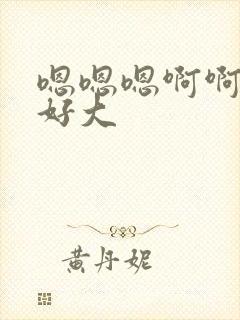 嗯嗯嗯啊啊
好大
黄丹妮